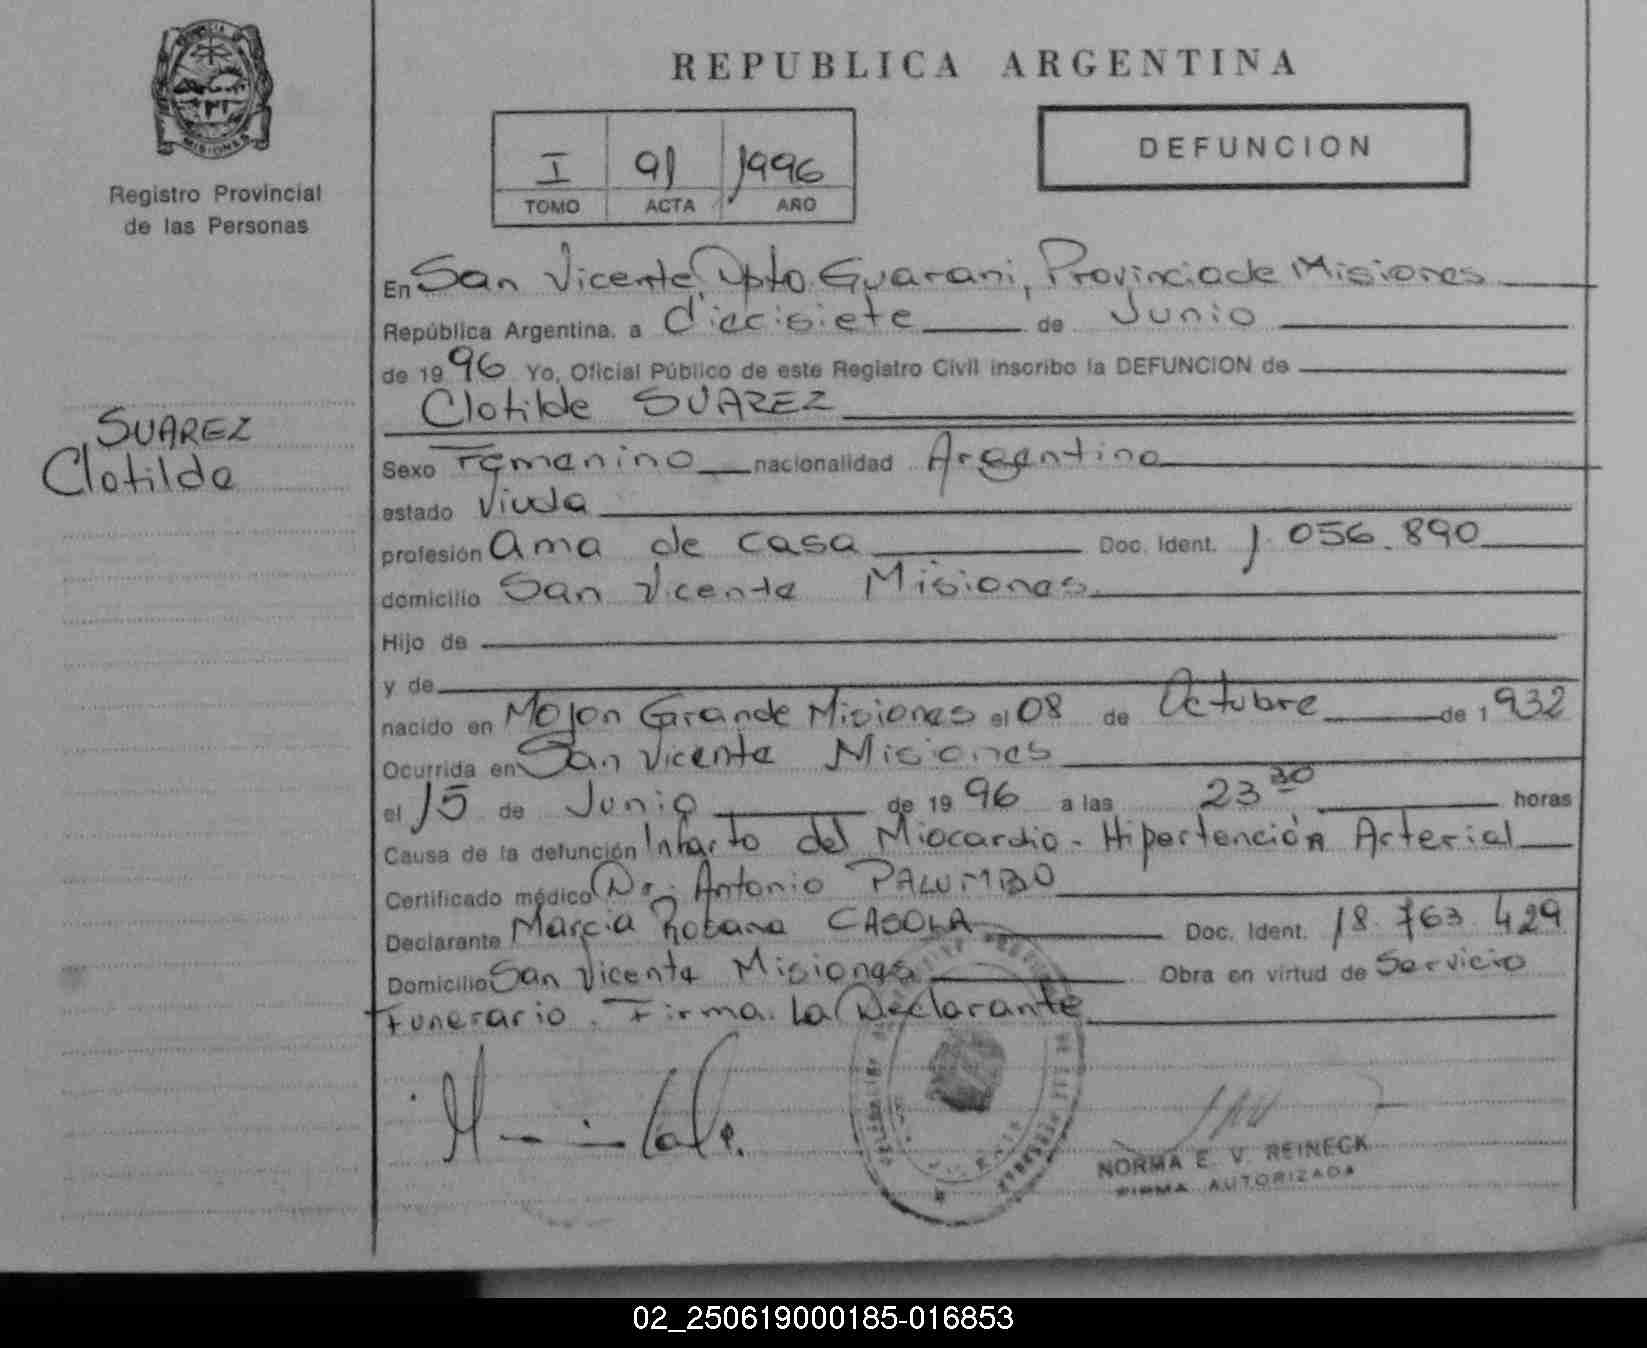 REPUBLICA ARGENTINA
MISIONES
Registro Provincial
de las Personas
I 91 1996
TOMO ACTA AÑO
DEFUNCION
En San Vicente, Dpto. Guarani, Provincia de Misiones
República Argentina, a diecisiete de Junio
de 1996 Yo, Oficial Público de este Registro Civil inscribo la DEFUNCION de
Clotilde SUAREZ
SUAREZ
Clotilde
Sexo Femenino nacionalidad Argentina
estado Viuda
profesión ama de casa Doc. Ident. 1.056.890
domicilio San Vicente Misiones
Hijo de
y de
nacido en Mojon Grande Misiones el 08 de Octubre de 1932
Ocurrida en San Vicente Misiones
el 15 de Junio de 1996 a las 23 30 horas
Causa de la defunción Infarto del Miocardio - Hipertención Arterial
Certificado médico Dr. Antonio PALUMBO
Declarante Marcia CASOLA Doc. Ident. 18.763.429
Domicilio San Vicente Misiones Obra en virtud de Servicio
Funerario. Firma La Declarante
NORMA E. V. REINECK
FIRMA AUTORIZADA
02_250619000185-016853